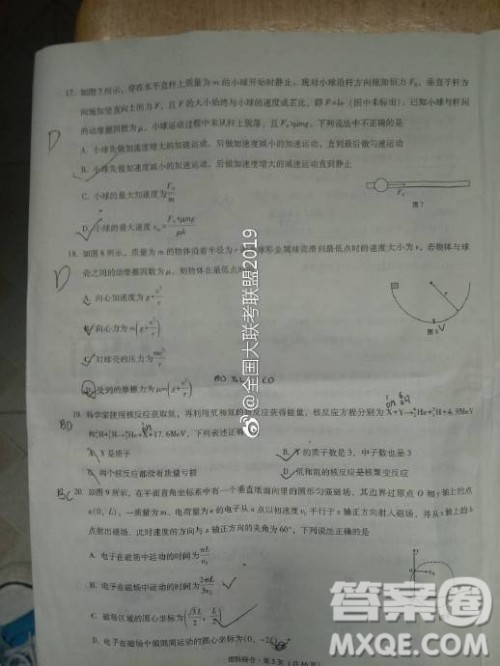 17. 如图7所示，穿在水平直杆上质量为m的小球开始时静止。现对小球沿杆方向施加恒力F₀，垂直于杆方
向施加竖直向上的力F，且F的大小始终与小球的速度成正比，即F=kv（图中未标出）。已知小球与杆间
的动摩擦因数为μ，小球运动过程中未从杆上脱落，且F₀>μmg。下列说法中不正确的是
D
A. 小球先做加速度增大的加速运动，后做加速度减小的加速运动，直到最后做匀速运动
B. 小球先做加速度增大的加速运动，后做加速度增大的减速运动直到静止
C. 小球的最大加速度为F₀/m
D. 小球的最大速度v₀=(F₀+μmg)/μk
图7
18. 如图8所示，质量为m的物体沿着半径为r的半球形金属球壳滑到最低点时的速度大小为v，若物体与球
D
壳之间的动摩擦因数为μ，则物体在最低点
A. 向心加速度为g+v²/r
B. 向心力为m(g+v²/r)
C. 对球壳的压力为mv²/r
D. 受到的摩擦力为μm(g+v²/r)
图8
19. 科学家使用核反应获取氚，再利用氘和氚的核反应获得能量，核反应方程分别为X+Y→⁴₂He+³₁H+4.9MeV
BD
和²₁H+³₁H→⁴₂He+X+17.6MeV，下列表述正确
A. X是质子
B. Y的质子数是3，中子数也是3
C. 两个核反应都没有质量亏损
D. 氘和氚的核反应是核聚变反应
BC
20. 如图9所示，在平面直角坐标系中有一个垂直纸面向里的圆形匀强磁场，其边界过原点O和y轴上的点
a(0，L)。一质量为m、电荷量为e的电子从a点以初速度v₀平行于x轴正方向射入磁场，并从x轴上的b
点射出磁场，此时速度的方向与x轴正方向的夹角为60°。下列说法正确的是
A. 电子在磁场中运动的时间为πL/v₀
B. 电子在磁场中运动的时间为2πL/3v₀
C. 磁场区域的圆心坐标为(√3L/2，L/2)
D. 电子在磁场中做圆周运动的圆心坐标为(0，-2L)
理科综合
@全国大联考联盟2019
答案圈
MXQE.COM